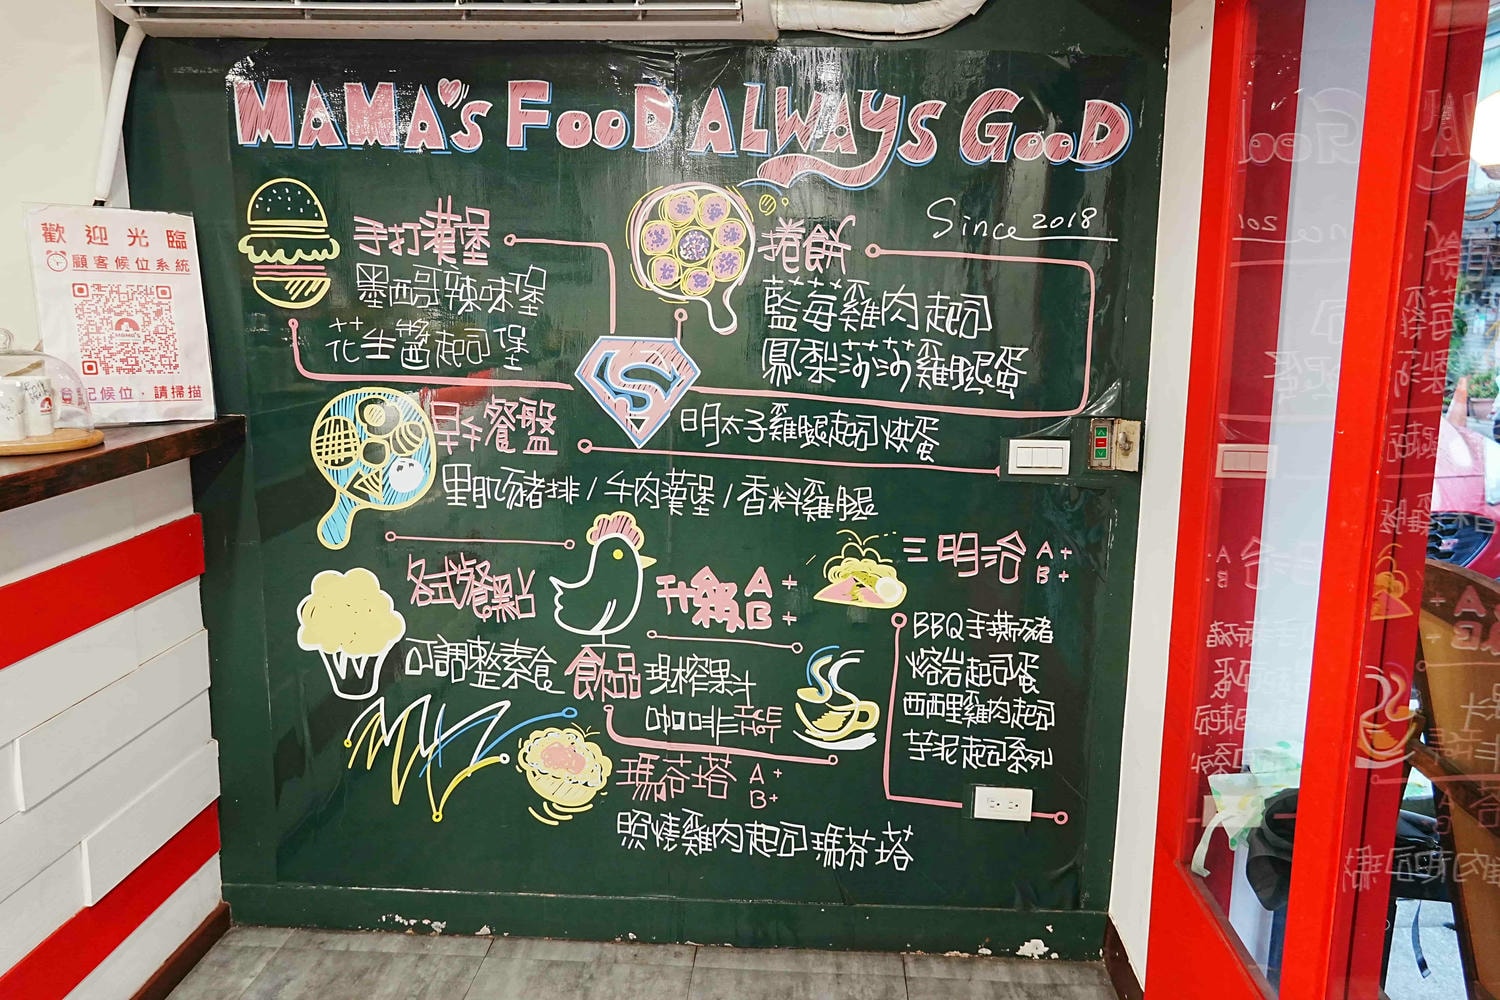 MAMA's FOOD ALWAYS GOOD
Since 2018
歡迎光臨
顧客候位系統
登記候位，請掃描
手打漢堡
墨西哥辣味堡
花生醬起司堡
捲餅
藍莓雞肉起司
鳳梨莎莎雞腿蛋
S
明太子雞腿起司烘蛋
早午餐盤
里肌豬排/牛肉漢堡/香料雞腿
各式餐點
可調整素食
升級A+
B+
飲品 現榨果汁
咖啡 ICE HOT
三明治 A+
B+
BBQ手撕豬
熔岩起司蛋
西西里雞肉起司
芋泥起司系列
瑪芬塔 A+
B+
照燒雞肉起司瑪芬塔